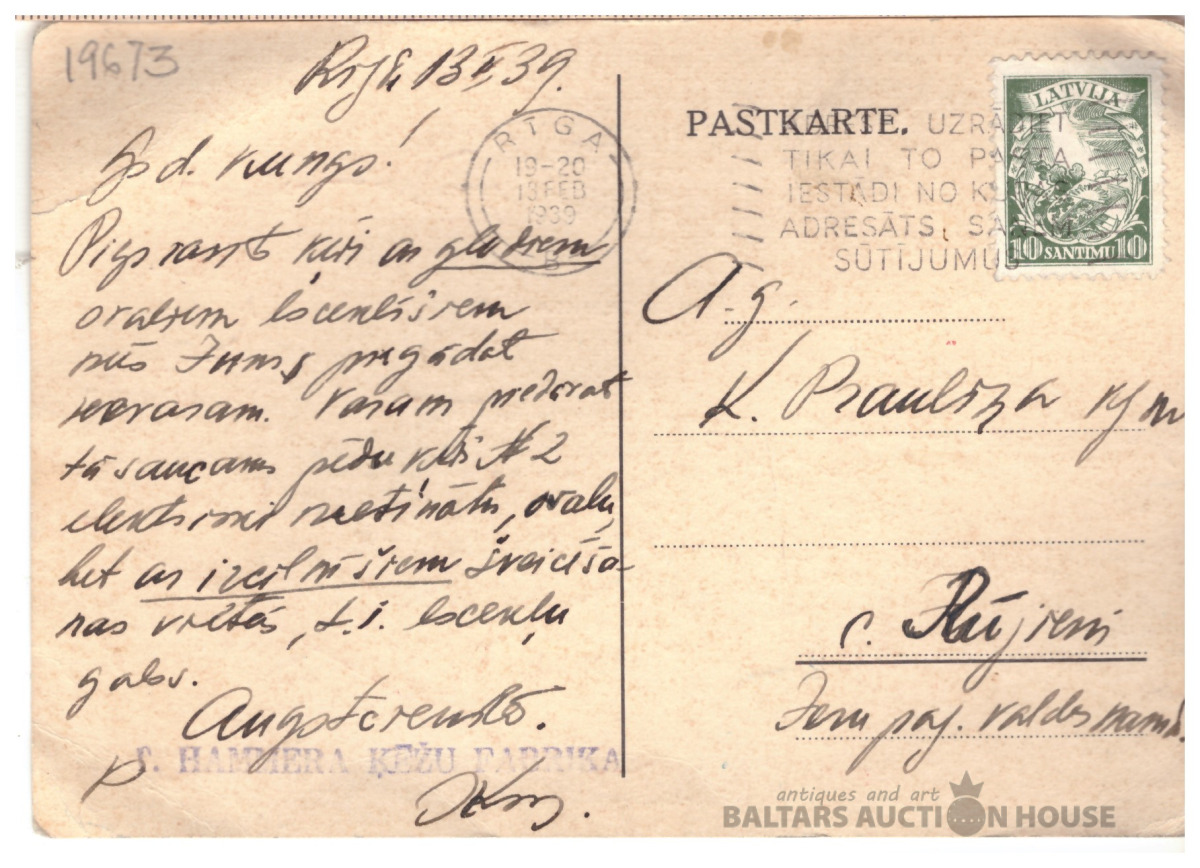 19673
Rīgā 13 II 39.
God. kungs!
Pieprasīto ķēži ar gludiem
ovaliem
mēs Jums piegādāt
nevaram. Varam piedāvāt
tā saucamo pēdu ķēži № 2
elektriski metinātu, ovalu,
bet ar izcilnīšiem
nas vietās, t. i.
galos.
Augstcienībā.
HAMMERA ĶĒŽU FABRIKA
P
RĪGA
19-20
13 FEB
1939
PASTKARTE.
UZRĀDIET
TIKAI TO PASTA
IESTĀDI NO KU
ADRESĀTS SAŅEM
SŪTĪJUMUS
LATVIJA
10 SANTIMU 10
A. g.
K. Prauliņa kgm
c. Rūjieni
Jeru pag. valdes namā.
antiques and art
BALTARS AUCTION HOUSE